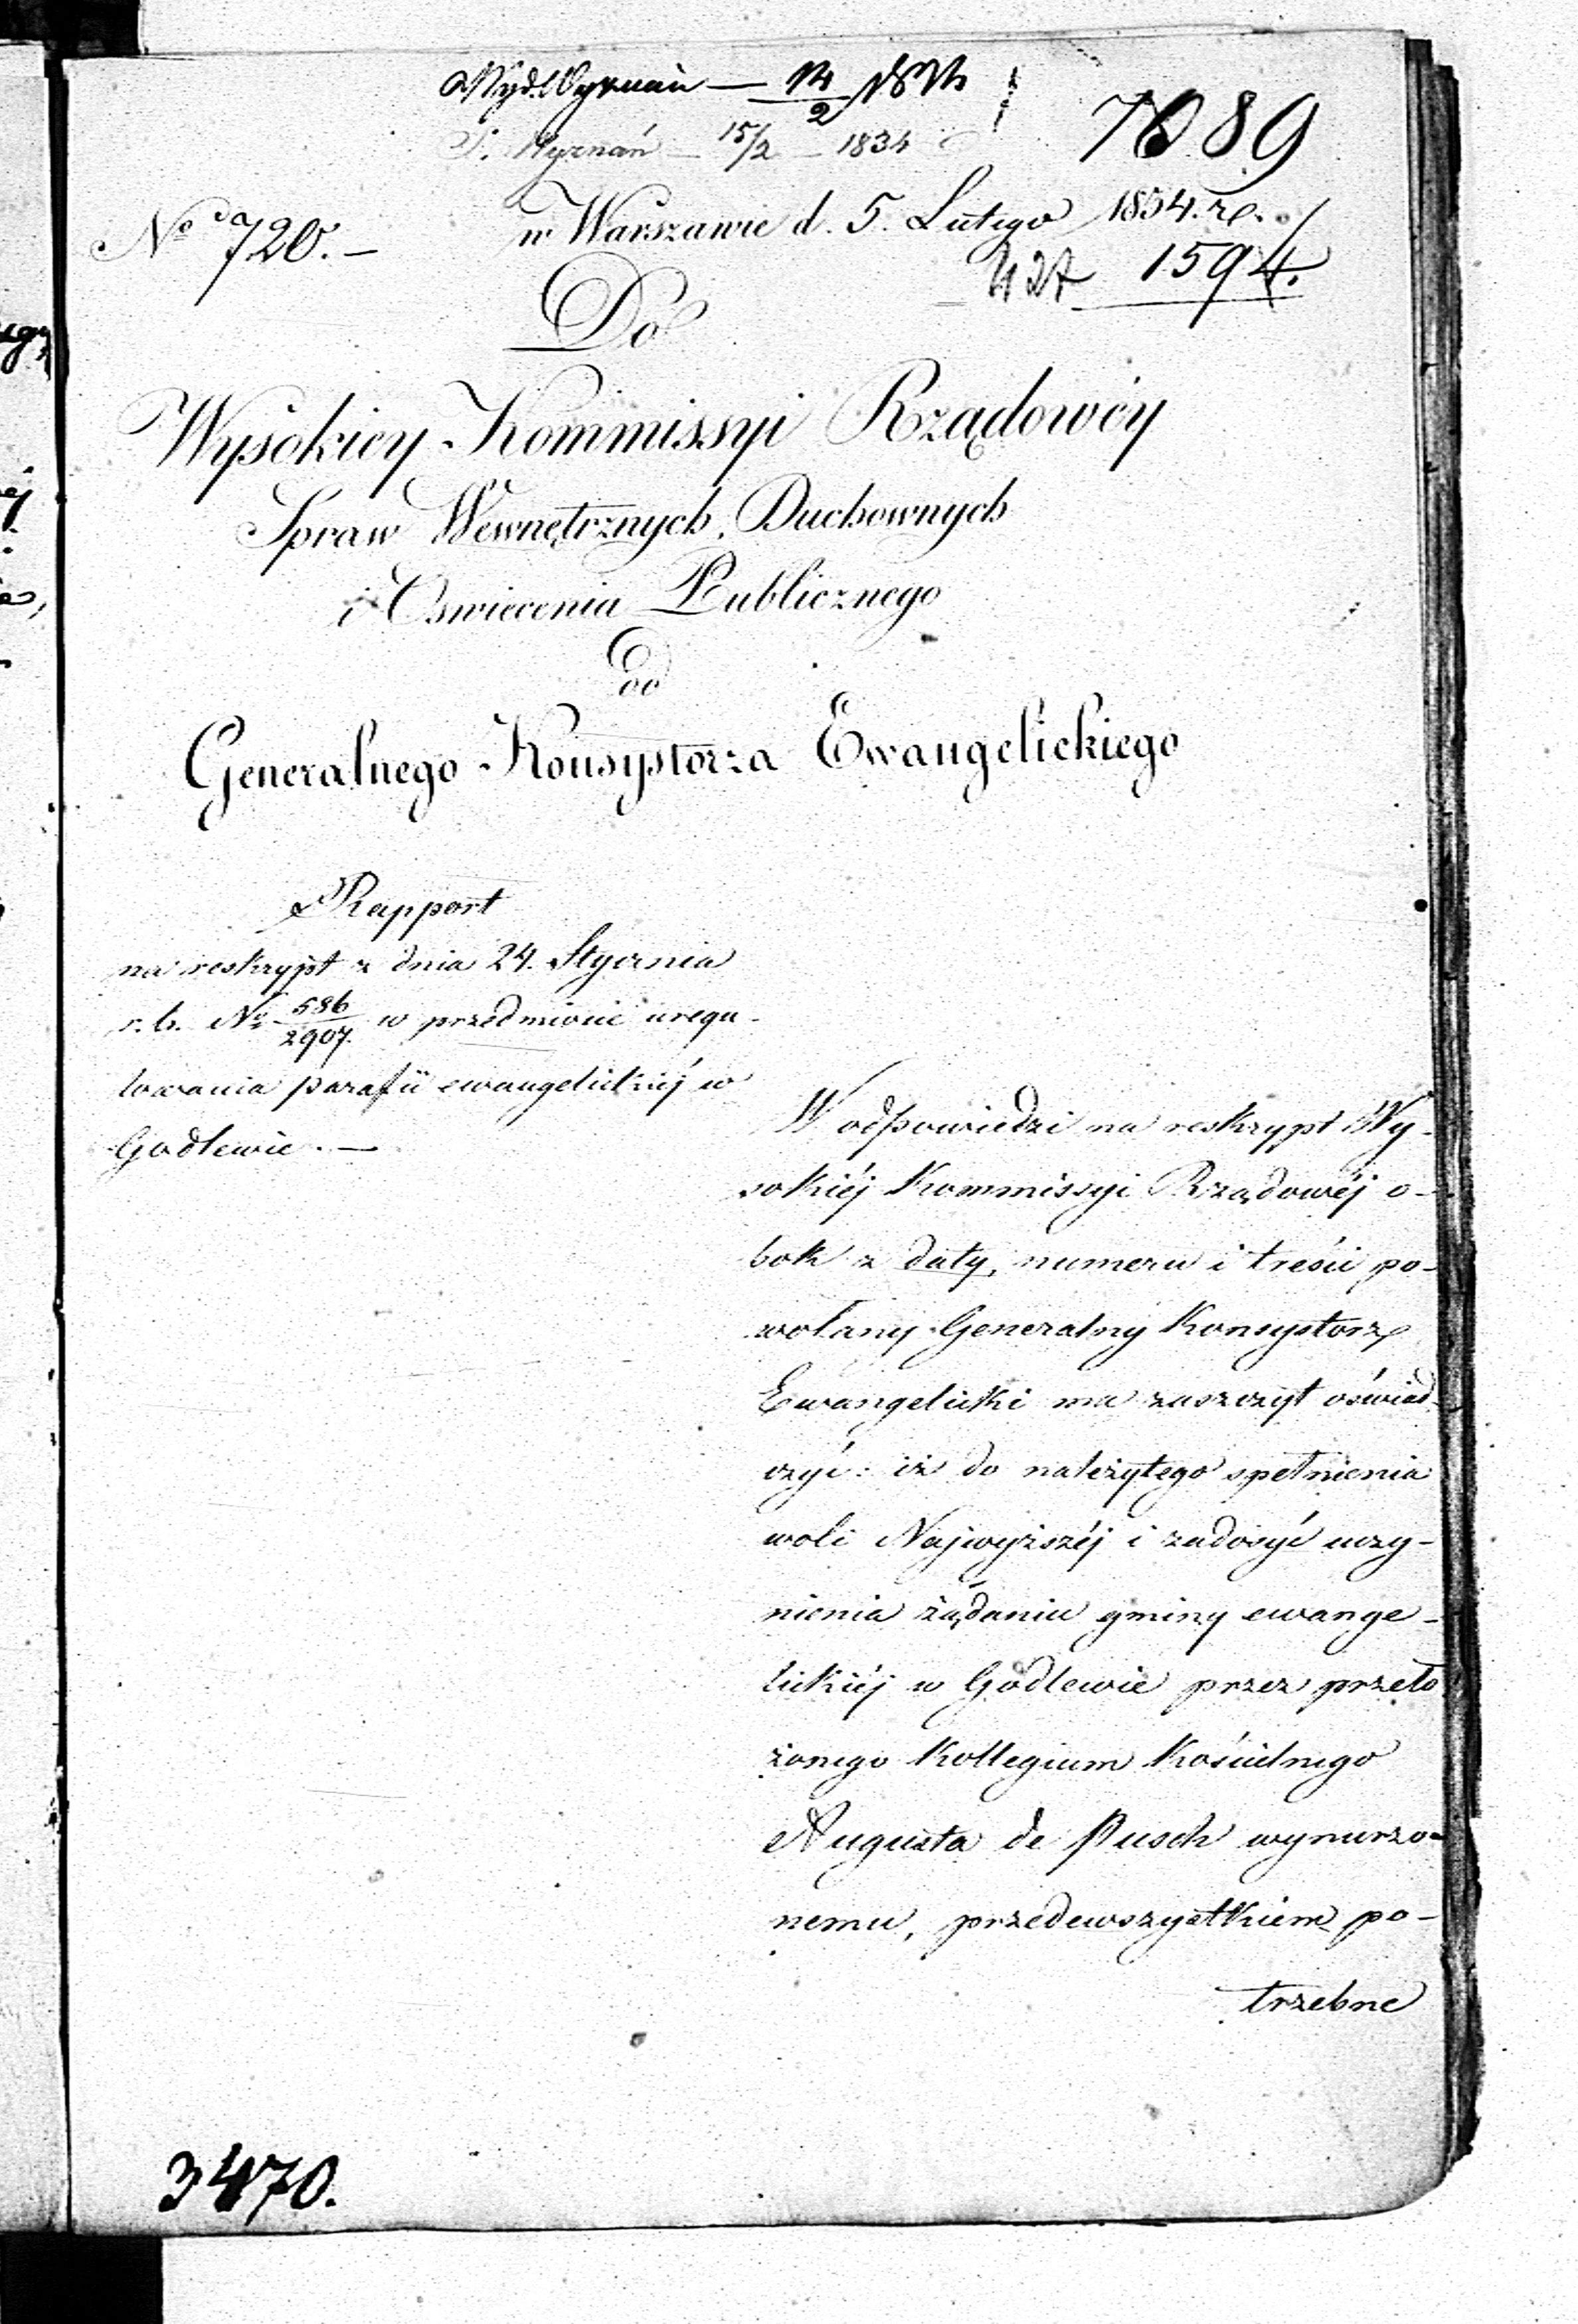 Wyd. Wyznań — 14/2 1834
S. Wyznań — 15/2 — 1834
7089
w Warszawie d. 5. Lutego 1834. r.
No 720. —
427 1594.
Do
Wysokiey Kommissyi Rządowéy
Spraw Wewnętrznych, Duchownych
i Oswiecenia Publicznego
Od
Generalnego Konsystorza Ewangelickiego
Rapport
na reskrypt z dnia 24. Stycznia
r. b. No 586/2907. w przedmiocie uregu-
lowania parafii ewangelickiéj w
Godlewie. —
W odpowiedzi na reskrypt Wy-
sokiéj Kommissyi Rządowéj o-
bok z daty, numeru i treści po-
wołany Generalny Konsystorz
Ewangelicki ma zaszczyt oświad-
czyć: iż do należytego spełnienia
woli Najwyższéj i zadosyć uczy-
nienia żądaniu gminy ewange-
lickiéj w Godlewie przez przeło
żonego Kollegium Kościelnego
Augusta de Pusch wynurzo-
nemu, przedewszystkiem po-
trzebne
3470.